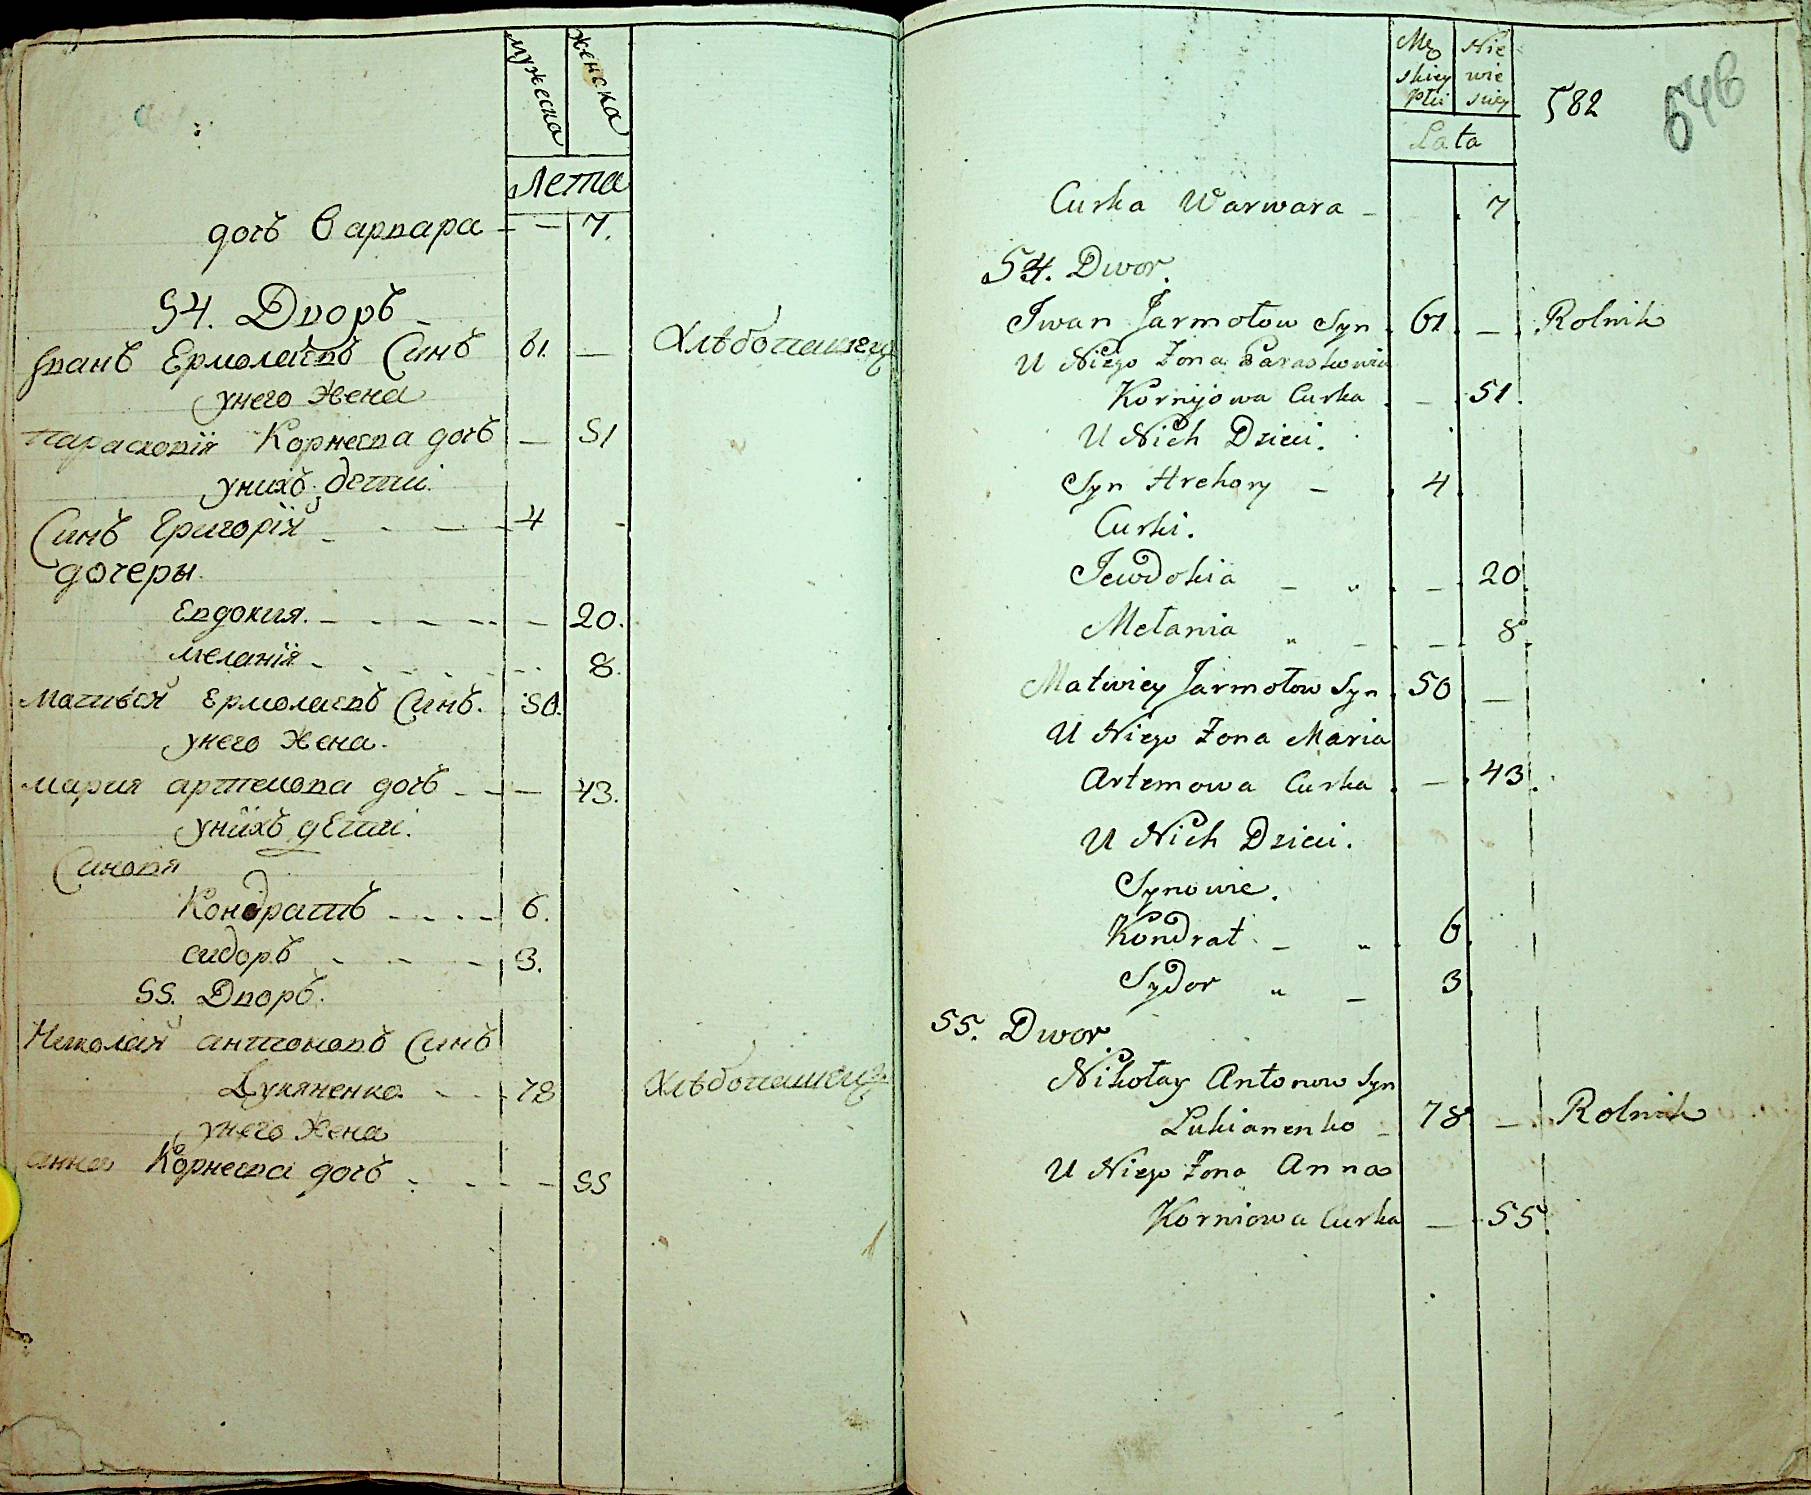 мужеска женска
Лета
дочь Варвара - - 7.
54. Дворъ
Іванъ Ермолаевъ Синъ 61. — Хлѣбопашецъ
унего Жена
Параскопія Корнеева дочъ — 51
унихъ дети.
Синъ Григорій 4 -
дочеры.
Евдокия. - - - - 20.
Меланія - - - - 8.
Матвей Ермолаевъ Синъ. 50.
унего Жена.
Мария артемова дочъ - - — 43.
унихъ дети.
Синовя
Кондратъ - - - - 6.
сидоръ - - - 3.
55. Дворъ.
Николай антоновъ Синъ
Лукяненко - - 78 Хлѣбопашецъ
унего Жена
анна Корнеева дочъ - - - - 55
Mę Nie
skiey wie
płci sciey
582 546
Lata
Curka Warwara - 7
54. Dwor.
Iwan Jarmołow Syn 61 — Rolnik
U Niego Żona Paraskowia
Kornijowa Curka — 51.
U Nich Dzieci.
Syn Hrehory - 4
Curki.
Jewdokia - „ — 20
Mełania „ - — 8
Matwiey Jarmołow Syn 50 —
U Niego Żona Maria
Artemowa Curka — 43.
U Nich Dzieci.
Synowie.
Kondrat - „ 6
Sydor „ - 3
55. Dwor
Nikołay Antonow Syn
Lukianenko - 78 — Rolnik
U Niego Żona Anna
Korniowa Curka — 55.